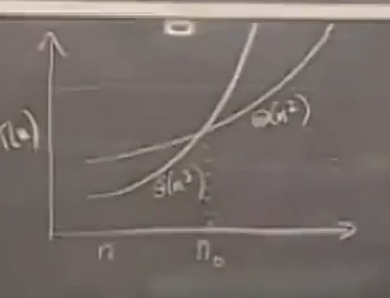 T(n)
Θ(n²)
Θ(n³)
n
n₀